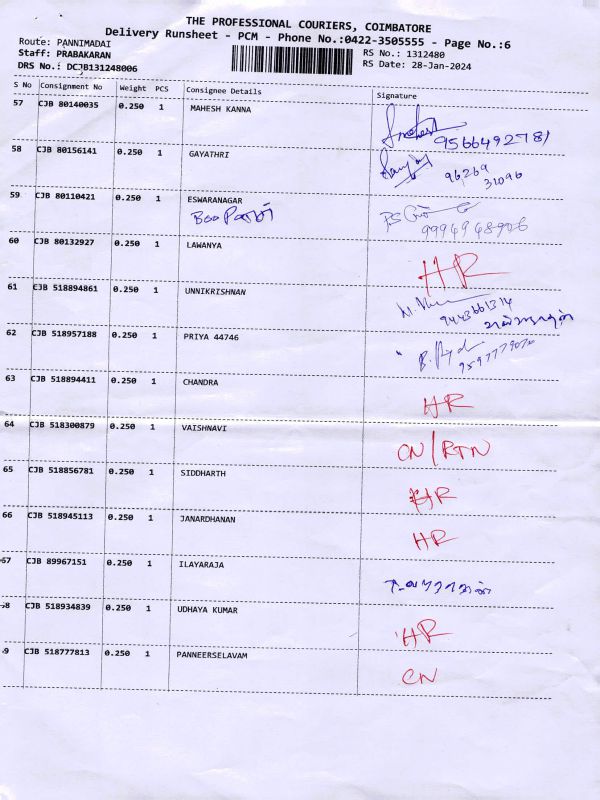 THE PROFESSIONAL COURIERS, COIMBATORE
Delivery Runsheet - PCM - Phone No.:0422-3505555 - Page No.:6
Route: PANNIMADAI
RS No.: 1312480
Staff: PRABAKARAN
RS Date: 28-Jan-2024
DRS No.: DCJB131248006
S No Consignment No Weight PCS Consignee Details Signature
57 CJB 80140035 0.250 1 MAHESH KANNA
9566492781
58 CJB 80156141 0.250 1 GAYATHRI
96269
31096
59 CJB 80110421 0.250 1 ESWARANAGAR
9994948906
60 CJB 80132927 0.250 1 LAWANYA
HR
61 CJB 518894861 0.250 1 UNNIKRISHNAN
9443661314
62 CJB 518957188 0.250 1 PRIYA 44746
63 CJB 518894411 0.250 1 CHANDRA
HR
64 CJB 518300879 0.250 1 VAISHNAVI
CN/RTN
65 CJB 518856781 0.250 1 SIDDHARTH
HR
66 CJB 518945113 0.250 1 JANARDHANAN
HR
67 CJB 89967151 0.250 1 ILAYARAJA
8 CJB 518934839 0.250 1 UDHAYA KUMAR
HR
9 CJB 518777813 0.250 1 PANNEERSELAVAM
CN